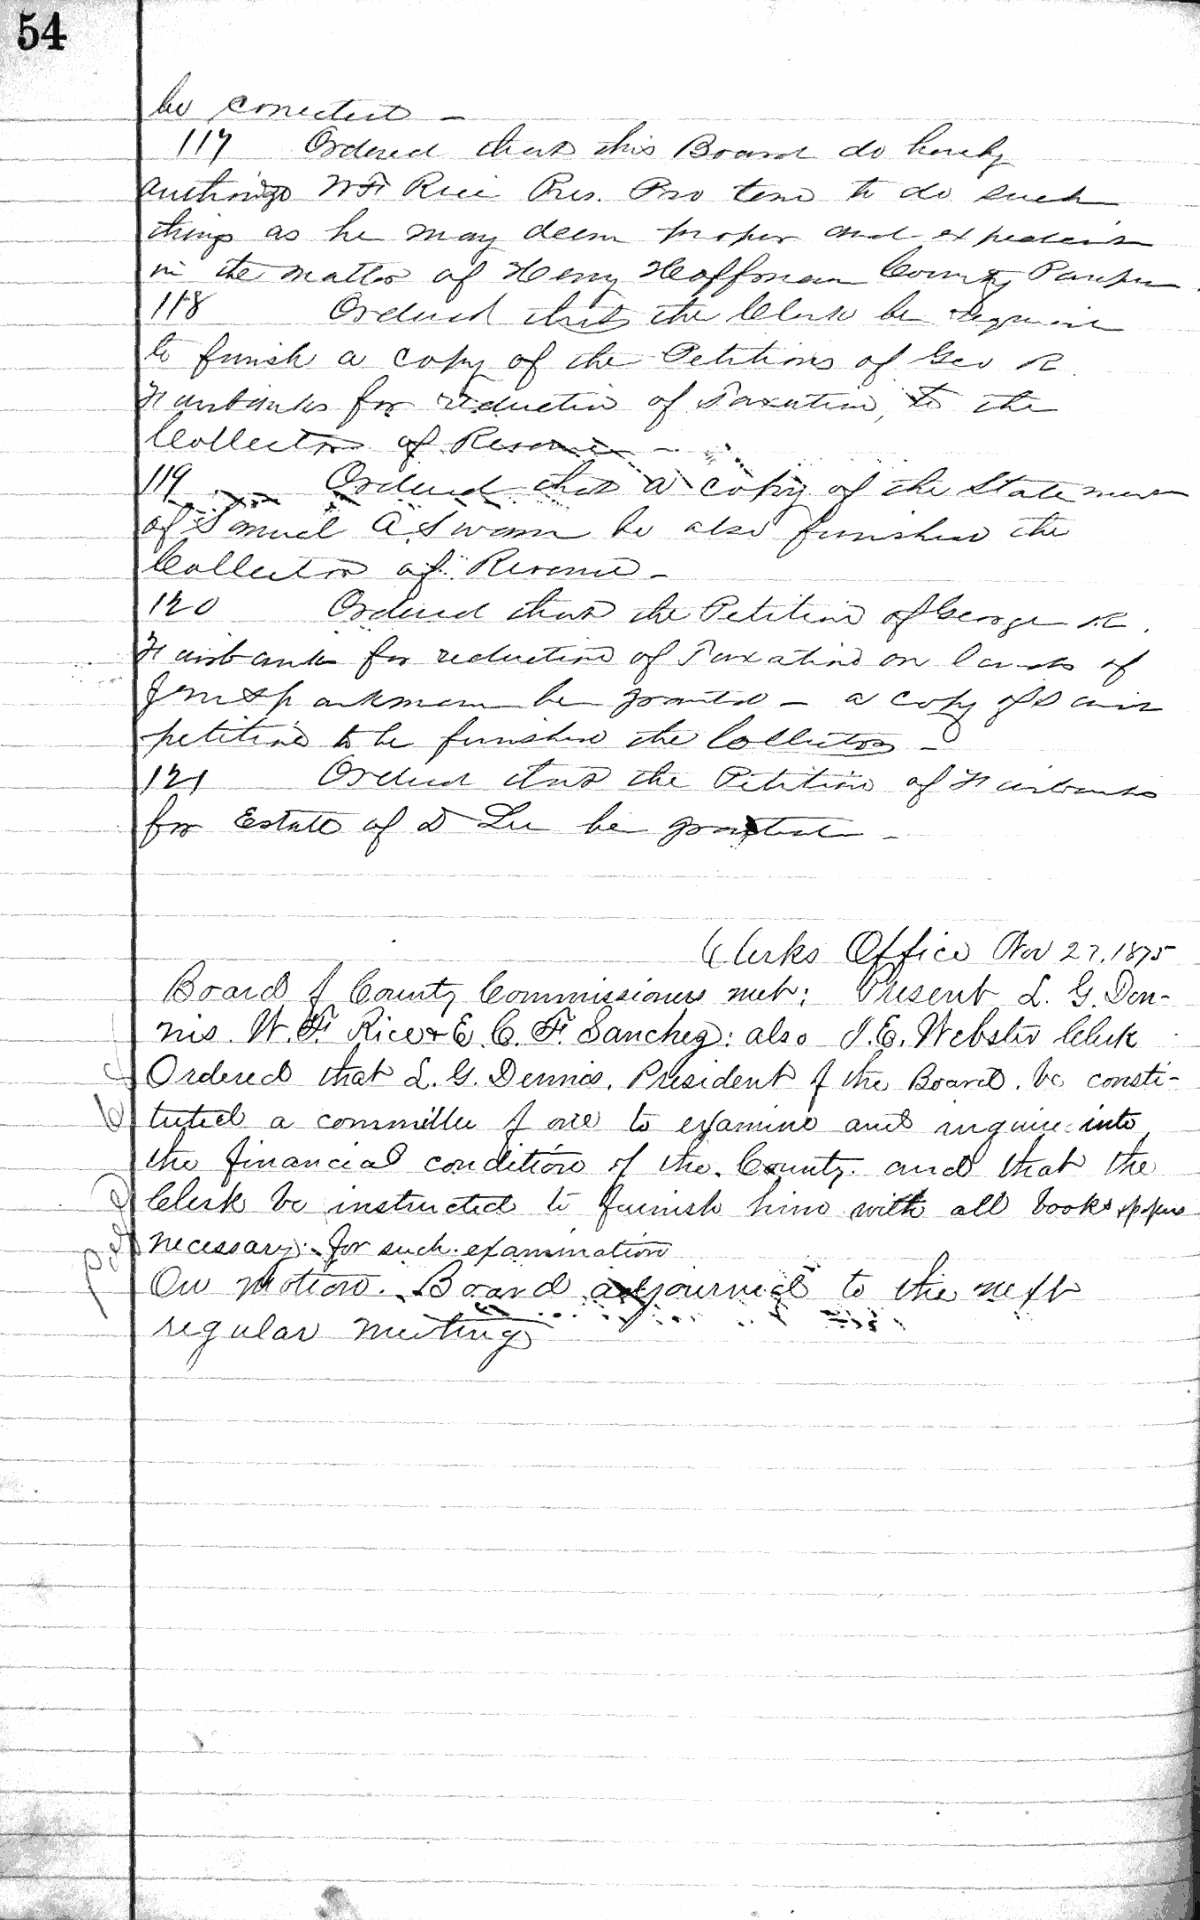 54
be corrected -
117 Ordered that this Board do hereby
authorize W F Rice Pres. Pro tem to do such
things as he may deem proper and expedient
in the matter of Henry Hoffman County Pauper.
118 Ordered that the Clerk be required
to furnish a copy of the Petitions of Geo R.
Fairbanks for reduction of Taxation, to the
Collector of Revenue -
119 Ordered that a copy of the Statement
of Samuel A. Swann be also furnished the
Collector of Revenue -
120 Ordered that the Petition of George R.
Fairbanks for reduction of Taxation on lands of
Sparkman be granted - a copy of said
petition to be furnished the Collector -
121 Ordered that the Petition of Fairbanks
for Estate of D Lee be granted -
Clerks Office Nov 27, 1875
Board of County Commissioners met; Present L. G. Den-
nis W. F. Rice & E. C. F. Sanchez: also J. E. Webster Clerk
Ordered that L. G. Dennis, President of the Board, be consti-
tuted a committee of one to examine and inquire into
the financial condition of the County and that the
Clerk be instructed to furnish him with all books & papers
necessary for such examination
On motion. Board adjourned to the next
regular meeting